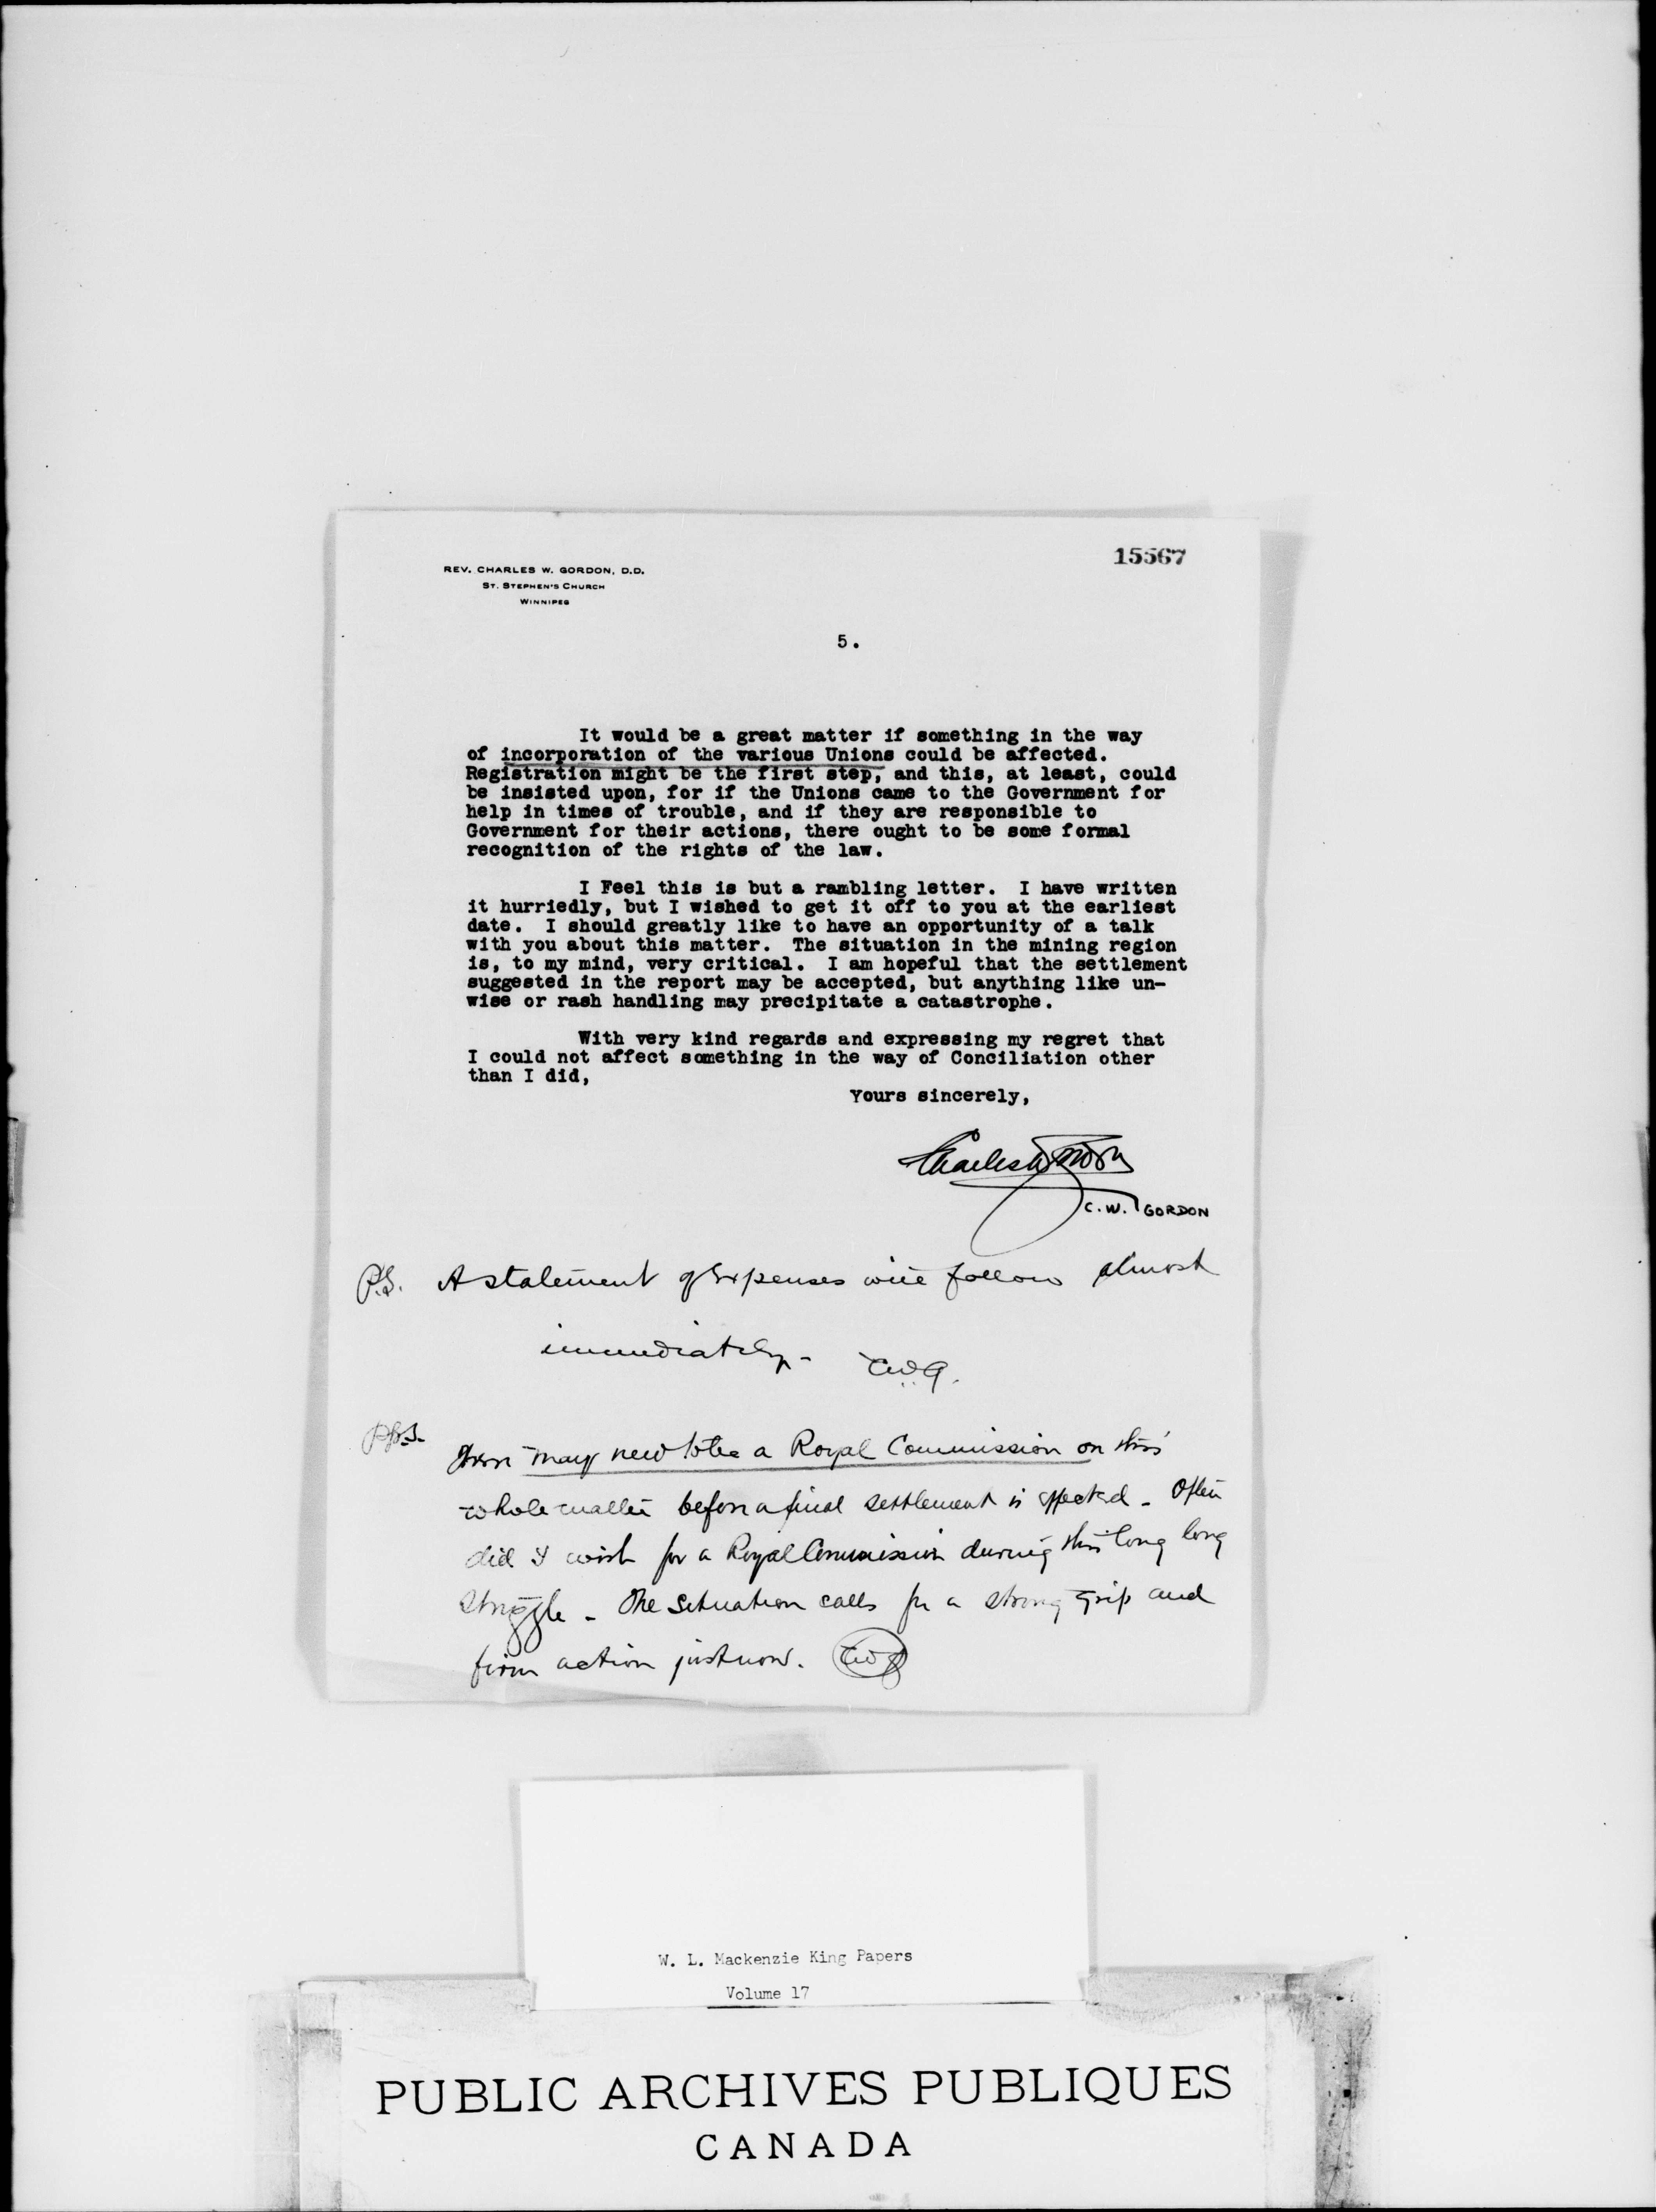 15567
REV. CHARLES W. GORDON, D.D.
ST. STEPHEN'S CHURCH
WINNIPEG
5.
It would be a great matter if something in the way
of incorporation of the various Unions could be affected.
Registration might be the first step, and this, at least, could
be insisted upon, for if the Unions came to the Government for
help in times of trouble, and if they are responsible to
Government for their actions, there ought to be some formal
recognition of the rights of the law.
I Feel this is but a rambling letter. I have written
it hurriedly, but I wished to get it off to you at the earliest
date. I should greatly like to have an opportunity of a talk
with you about this matter. The situation in the mining region
is, to my mind, very critical. I am hopeful that the settlement
suggested in the report may be accepted, but anything like un-
wise or rash handling may precipitate a catastrophe.
With very kind regards and expressing my regret that
I could not affect something in the way of Conciliation other
than I did,
Yours sincerely,
Charles W Gordon
C. W. GORDON
P.S. A statement of Expenses will follow almost
immediately - CWG.
P.P.S. There may need to be a Royal Commission on this
whole matter before a final settlement is effected - Often
did I wish for a Royal Commission during this long long
struggle - The situation calls for a strong grip and
firm action just now. CWG
W. L. Mackenzie King Papers
Volume 17
PUBLIC ARCHIVES PUBLIQUES
CANADA